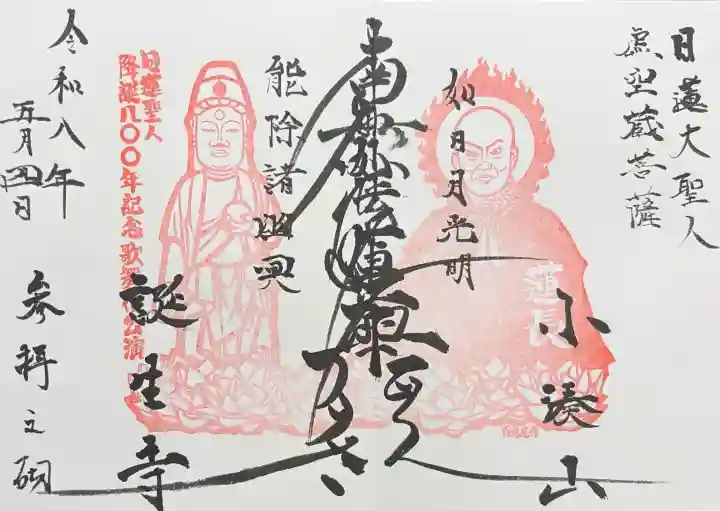 日蓮大聖人
虚空蔵菩薩
小湊山
如日月光明
蓮長
南無妙法蓮華経
能除諸幽冥
誕生寺
日蓮聖人
降誕八〇〇年記念歌舞伎公演
令和八年
五月四日
参拝之砌